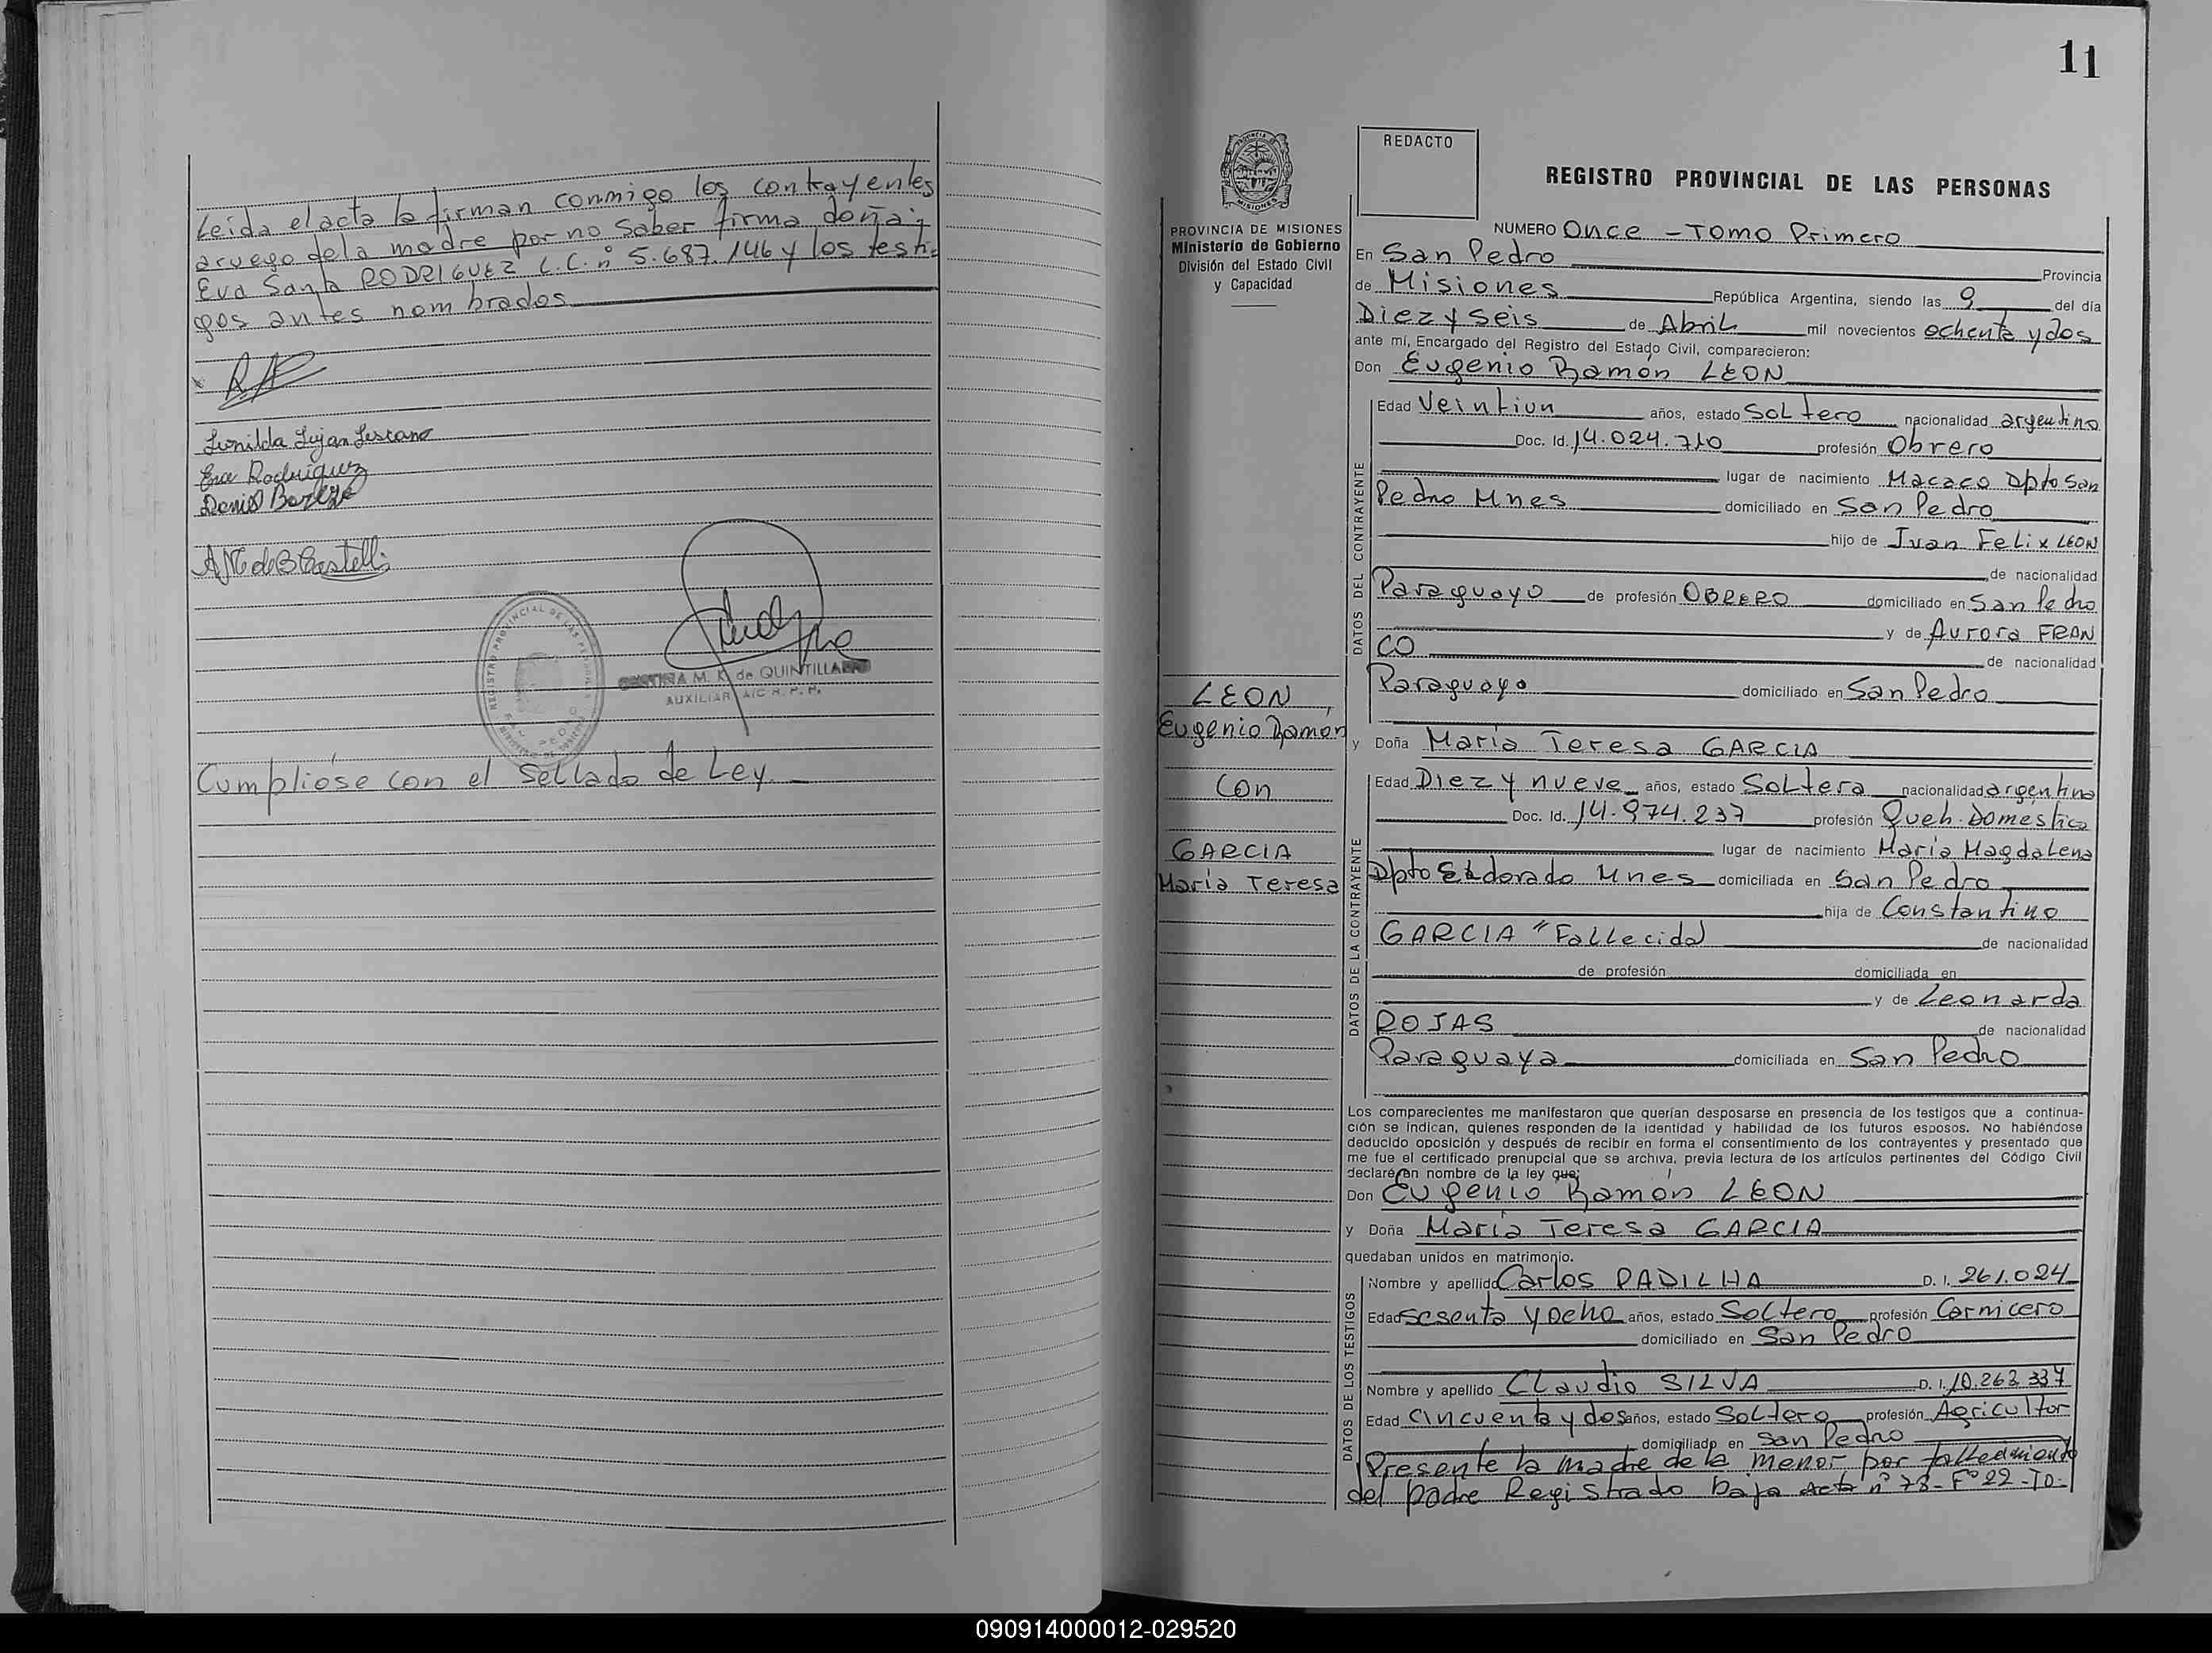 Leida el acta la firman conmigo los contrayentes
a ruego de la madre por no saber firma doña:
Eva Santa RODRIGUEZ L.C. nº 5.687.146 y los testi-
gos antes nombrados
Leonilda Lujan Lescano
Eva Rodriguez
REGISTRO PROVINCIAL DE LAS PERSONAS
M. K. de QUINTILLAN
AUXILIAR A/C R. P. P.
Cumplióse con el Sellado de Ley.
11
PROVINCIA DE MISIONES
Ministerio de Gobierno
División del Estado Civil
y Capacidad
LEON,
Eugenio Ramón
con
GARCIA
Maria Teresa
REDACTO
REGISTRO PROVINCIAL DE LAS PERSONAS
NUMERO Once - Tomo Primero
En San Pedro Provincia
de Misiones República Argentina, siendo las 9 del día
Diez y seis de Abril mil novecientos ochenta y dos
ante mí, Encargado del Registro del Estado Civil, comparecieron:
Don Eugénio Ramón LEON
DATOS DEL CONTRAYENTE
Edad Veintiun años, estado Soltero nacionalidad argentino
Doc. Id. 14.024.710 profesión Obrero
lugar de nacimiento Macaco Dpto San
Pedro Mnes domiciliado en San Pedro
hijo de Juan Felix LEON
de nacionalidad
Paraguayo de profesión OBRERO domiciliado en San Pedro
y de Aurora FRAN
CO de nacionalidad
Paraguaya domiciliado en San Pedro
y Doña María Teresa GARCIA
DATOS DE LA CONTRAYENTE
Edad Diez y nueve años, estado Soltera nacionalidad argentina
Doc. Id. 14.974.237 profesión Queh. Domestico
lugar de nacimiento María Magdalena
Dpto Eldorado Mnes domiciliada en San Pedro
hija de Constantino
GARCIA "Fallecido" de nacionalidad
de profesión domiciliada en
y de Leonarda
ROJAS de nacionalidad
Paraguaya domiciliada en San Pedro
Los comparecientes me manifestaron que querían desposarse en presencia de los testigos que a continua-
ción se indican, quienes responden de la identidad y habilidad de los futuros esposos. No habiéndose
deducido oposición y después de recibir en forma el consentimiento de los contrayentes y presentado que
me fue el certificado prenupcial que se archiva, previa lectura de los artículos pertinentes del Código Civil
declaré en nombre de la ley que:
Don Eugenio Ramón LEON
y Doña María Teresa GARCIA
quedaban unidos en matrimonio.
DATOS DE LOS TESTIGOS
Nombre y apellido Carlos PADILHA D. I. 261.024
Edad Sesenta y ocho años, estado Soltero profesión Carnicero
domiciliado en San Pedro
Nombre y apellido Claudio SILVA D. I. 10.263.337
Edad Cincuenta y dos años, estado Soltero profesión Agricultor
domiciliado en San Pedro
Presente la madre de la menor por fallecimiento
del padre Registrado bajo Acta nº 78 - Fº 22 - Tº-
090914000012-029520